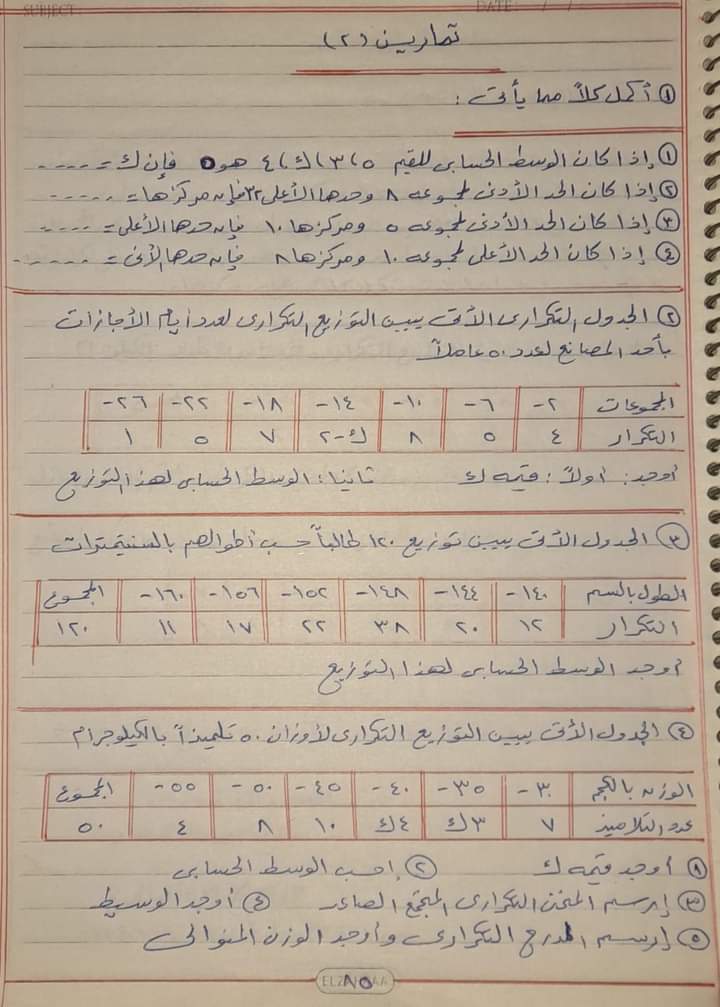 SUBJECT: DATE: / /
تمارين (٢)
① أكمل كلاً مما يأتى :
① إذا كان الوسط الحسابى للقيم ٥ ، ٣ ، ك ، ٤ هو ٥ فإن ك = .....
② إذا كان الحد الأدنى لمجموعه ٨ وحدها الأعلى ٣٢ فإنه مركزها = .....
③ إذا كان الحد الأدنى لمجموعه ٥ ومركزها ١٠ فإنه حدها الأعلى = .....
④ إذا كان الحد الأعلى لمجموعه ١٠ ومركزها ٨ فإنه حدها الأدنى = .....
② الجدول التكرارى الآتى يبين التوزيع التكرارى لعدد أيام الأجازات
بأحد المصانع لعدد ٥٠ عاملاً
المجموعات ٢- ٦- ١٠- ١٤- ١٨- ٢٢- ٢٦-
التكرار ٤ ٥ ٨ ك-٢ ٧ ٥ ١
أوجد: أولاً : قيمه ك ثانيا : الوسط الحسابى لهذا التوزيع
③ الجدول الآتى يبين توزيع ١٢٠ طالباً حسب أطوالهم بالسنتيمترات
الطول بالسم ١٤٠- ١٤٤- ١٤٨- ١٥٢- ١٥٦- ١٦٠- المجموع
التكرار ١٢ ٢٠ ٣٨ ٢٢ ١٧ ١١ ١٢٠
أوجد الوسط الحسابى لهذا التوزيع
④ الجدول الآتى يبين التوزيع التكرارى لأوزان ٥٠ تلميذاً بالكيلوجرام
الوزن بالكجم ٣٠- ٣٥- ٤٠- ٤٥- ٥٠- ٥٥- المجموع
عدد التلاميذ ٧ ٣ك ٤ك ١٠ ٨ ٤ ٥٠
① أوجد قيمه ك ② إحسب الوسط الحسابى
③ إرسم المنحنى التكرارى المتجمع الصاعد ④ أوجد الوسيط
⑤ إرسم المدرج التكرارى وأوجد الوزن المنوالى
٨٥